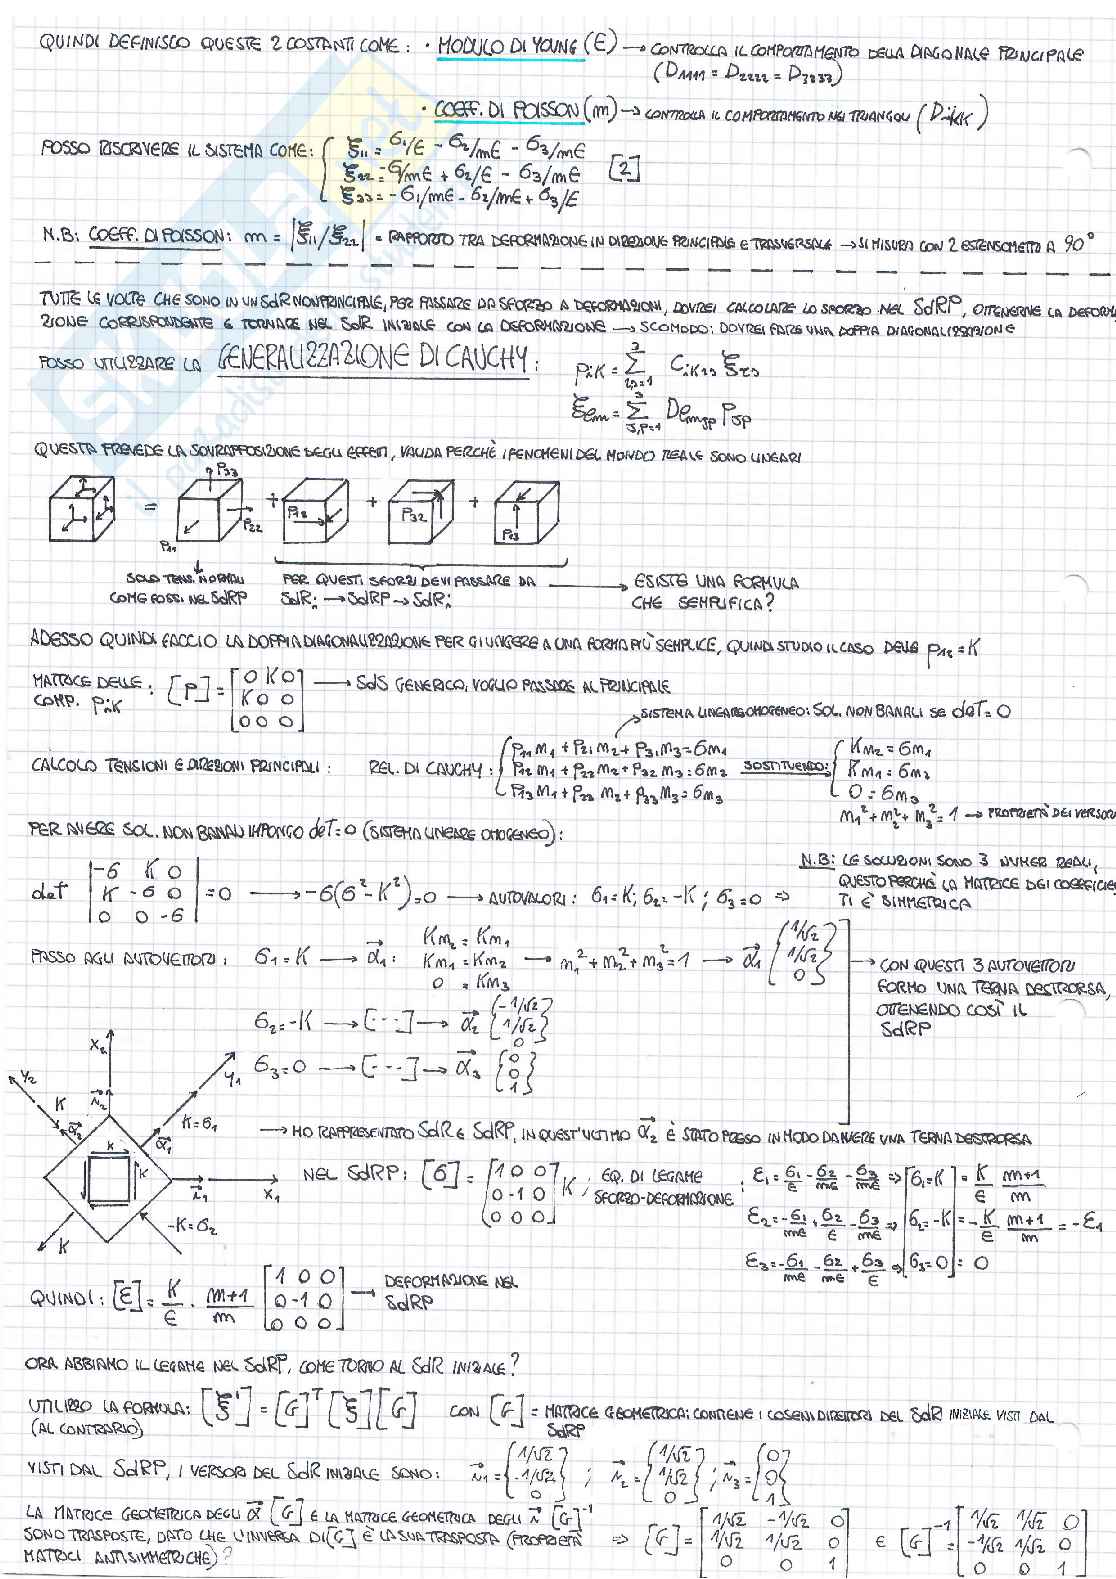 QUINDI DEFINISCO QUESTE 2 COSTANTI COME: · MODULO DI YOUNG (E) → CONTROLLA IL COMPORTAMENTO DELLA DIAGONALE PRINCIPALE
(D1111 = D2222 = D3333)
· COEFF. DI POISSON (m) → CONTROLLA IL COMPORTAMENTO NEI TRIANGOLI (Diikk)
POSSO RISCRIVERE IL SISTEMA COME: { ξ11 = σ1/E - σ2/mE - σ3/mE
ξ22 = -σ1/mE + σ2/E - σ3/mE [2]
ξ33 = -σ1/mE - σ2/mE + σ3/E
N.B: COEFF. DI POISSON: m = |ξ11/ξ22| = RAPPORTO TRA DEFORMAZIONE IN DIREZIONE PRINCIPALE E TRASVERSALE → SI MISURA CON 2 ESTENSOMETRI A 90°
TUTTE LE VOLTE CHE SONO IN UN SdR NON PRINCIPALE, PER PASSARE DA SFORZO A DEFORMAZIONI, DOVREI CALCOLARE LO SFORZO NEL SdRP, OTTENERNE LA DEFORMA
ZIONE CORRISPONDENTE E TORNARE NEL SdR INIZIALE CON LA DEFORMAZIONE → SCOMODO: DOVREI FARE UNA DOPPIA DIAGONALIZZAZIONE
POSSO UTILIZZARE LA GENERALIZZAZIONE DI CAUCHY: piK = Σ CiKrs ξrs
ξem = Σ Demjp pjp
QUESTA PREVEDE LA SOVRAPPOSIZIONE DEGLI EFFETTI, VALIDA PERCHÈ I FENOMENI DEL MONDO REALE SONO LINEARI
P33
= P22 + P12 + P32 + P13
P11
SOLO TENS. NORMALI PER QUESTI SFORZI DEVI PASSARE DA → ESISTE UNA FORMULA
COME FOSSI NEL SdRP SdRi → SdRP → SdRi CHE SEMPLIFICA?
ADESSO QUINDI FACCIO LA DOPPIA DIAGONALIZZAZIONE PER GIUNGERE A UNA FORMA PIÙ SEMPLICE, QUINDI STUDIO IL CASO DELLE p12 = K
MATRICE DELLE COMP. PiK : [P] = [0 K 0
K 0 0
0 0 0] → SdS GENERICO, VOGLIO PASSARE AL PRINCIPALE
→ SISTEMA LINEARE OMOGENEO: SOL. NON BANALI SE det = 0
CALCOLO TENSIONI E DIREZIONI PRINCIPALI: REL. DI CAUCHY: { P11 m1 + P21 m2 + P31 m3 = σm1
P12 m1 + P22 m2 + P32 m3 = σm2
P13 m1 + P23 m2 + P33 m3 = σm3
SOSTITUENDO: { Km2 = σm1
Km1 = σm2
0 = σm3
m1² + m2² + m3² = 1 → PROPRIETÀ DEI VERSORI
PER AVERE SOL. NON BANALI IMPONGO det = 0 (SISTEMA LINEARE OMOGENEO):
det |-σ K 0
K -σ 0
0 0 -σ| = 0 → -σ(σ² - K²) = 0 → AUTOVALORI: σ1 = K; σ2 = -K; σ3 = 0 ⇒
N.B: LE SOLUZIONI SONO 3 NUMERI REALI,
QUESTO PERCHÈ LA MATRICE DEI COEFFICIEN
TI È SIMMETRICA
PASSO AGLI AUTOVETTORI: σ1 = K → α1: Km2 = Km1
Km1 = Km2
0 = Km3
→ m1² + m2² + m3² = 1 → α1 {1/√2
1/√2
0}
σ2 = -K → [...] → α2 {-1/√2
1/√2
0}
σ3 = 0 → [...] → α3 {0
0
1}
→ CON QUESTI 3 AUTOVETTORI
FORMO UNA TERNA DESTRORSA,
OTTENENDO COSÌ IL
SdRP
X2
Y2
Y1
K
K = σ1
α2
α1
K
K
X1
K
-K = σ2
→ HO RAPPRESENTATO SdR E SdRP, IN QUEST'ULTIMO α2 È STATO PRESO IN MODO DA AVERE UNA TERNA DESTRORSA
NEL SdRP: [σ] = [1 0 0
0 -1 0
0 0 0] K ; EQ. DI LEGAME
SFORZO-DEFORMAZIONE :
ε1 = σ1/E - σ2/mE - σ3/mE ⇒ |σ1 = K| = K/E m+1/m
ε2 = -σ1/mE + σ2/E - σ3/mE ⇒ |σ2 = -K| = -K/E m+1/m = -ε1
ε3 = -σ1/mE - σ2/mE + σ3/E ⇒ |σ3 = 0| = 0
QUINDI: [ε] = K/E · m+1/m [1 0 0
0 -1 0
0 0 0] → DEFORMAZIONE NEL
SdRP
ORA ABBIAMO IL LEGAME NEL SdRP, COME TORNO AL SdR INIZIALE?
UTILIZZO LA FORMULA: [ξ'] = [G]ᵀ [ξ] [G] CON [G] = MATRICE GEOMETRICA: CONTIENE I COSENI DIRETTORI DEL SdR INIZIALE VISTI DAL
(AL CONTRARIO) SdRP
VISTI DAL SdRP, I VERSORI DEL SdR INIZIALE SONO: i1 = {1/√2
-1/√2
0} ; i2 = {1/√2
1/√2
0} ; i3 = {0
0
1}
LA MATRICE GEOMETRICA DEGLI α [G] E LA MATRICE GEOMETRICA DEGLI i [G]⁻¹
SONO TRASPOSTE, DATO CHE L'INVERSA DI [G] È LA SUA TRASPOSTA (PROPRIETÀ
MATRICI ANTISIMMETRICHE)?
⇒ [G] = [1/√2 -1/√2 0
1/√2 1/√2 0
0 0 1] E [G]⁻¹ = [1/√2 1/√2 0
-1/√2 1/√2 0
0 0 1]